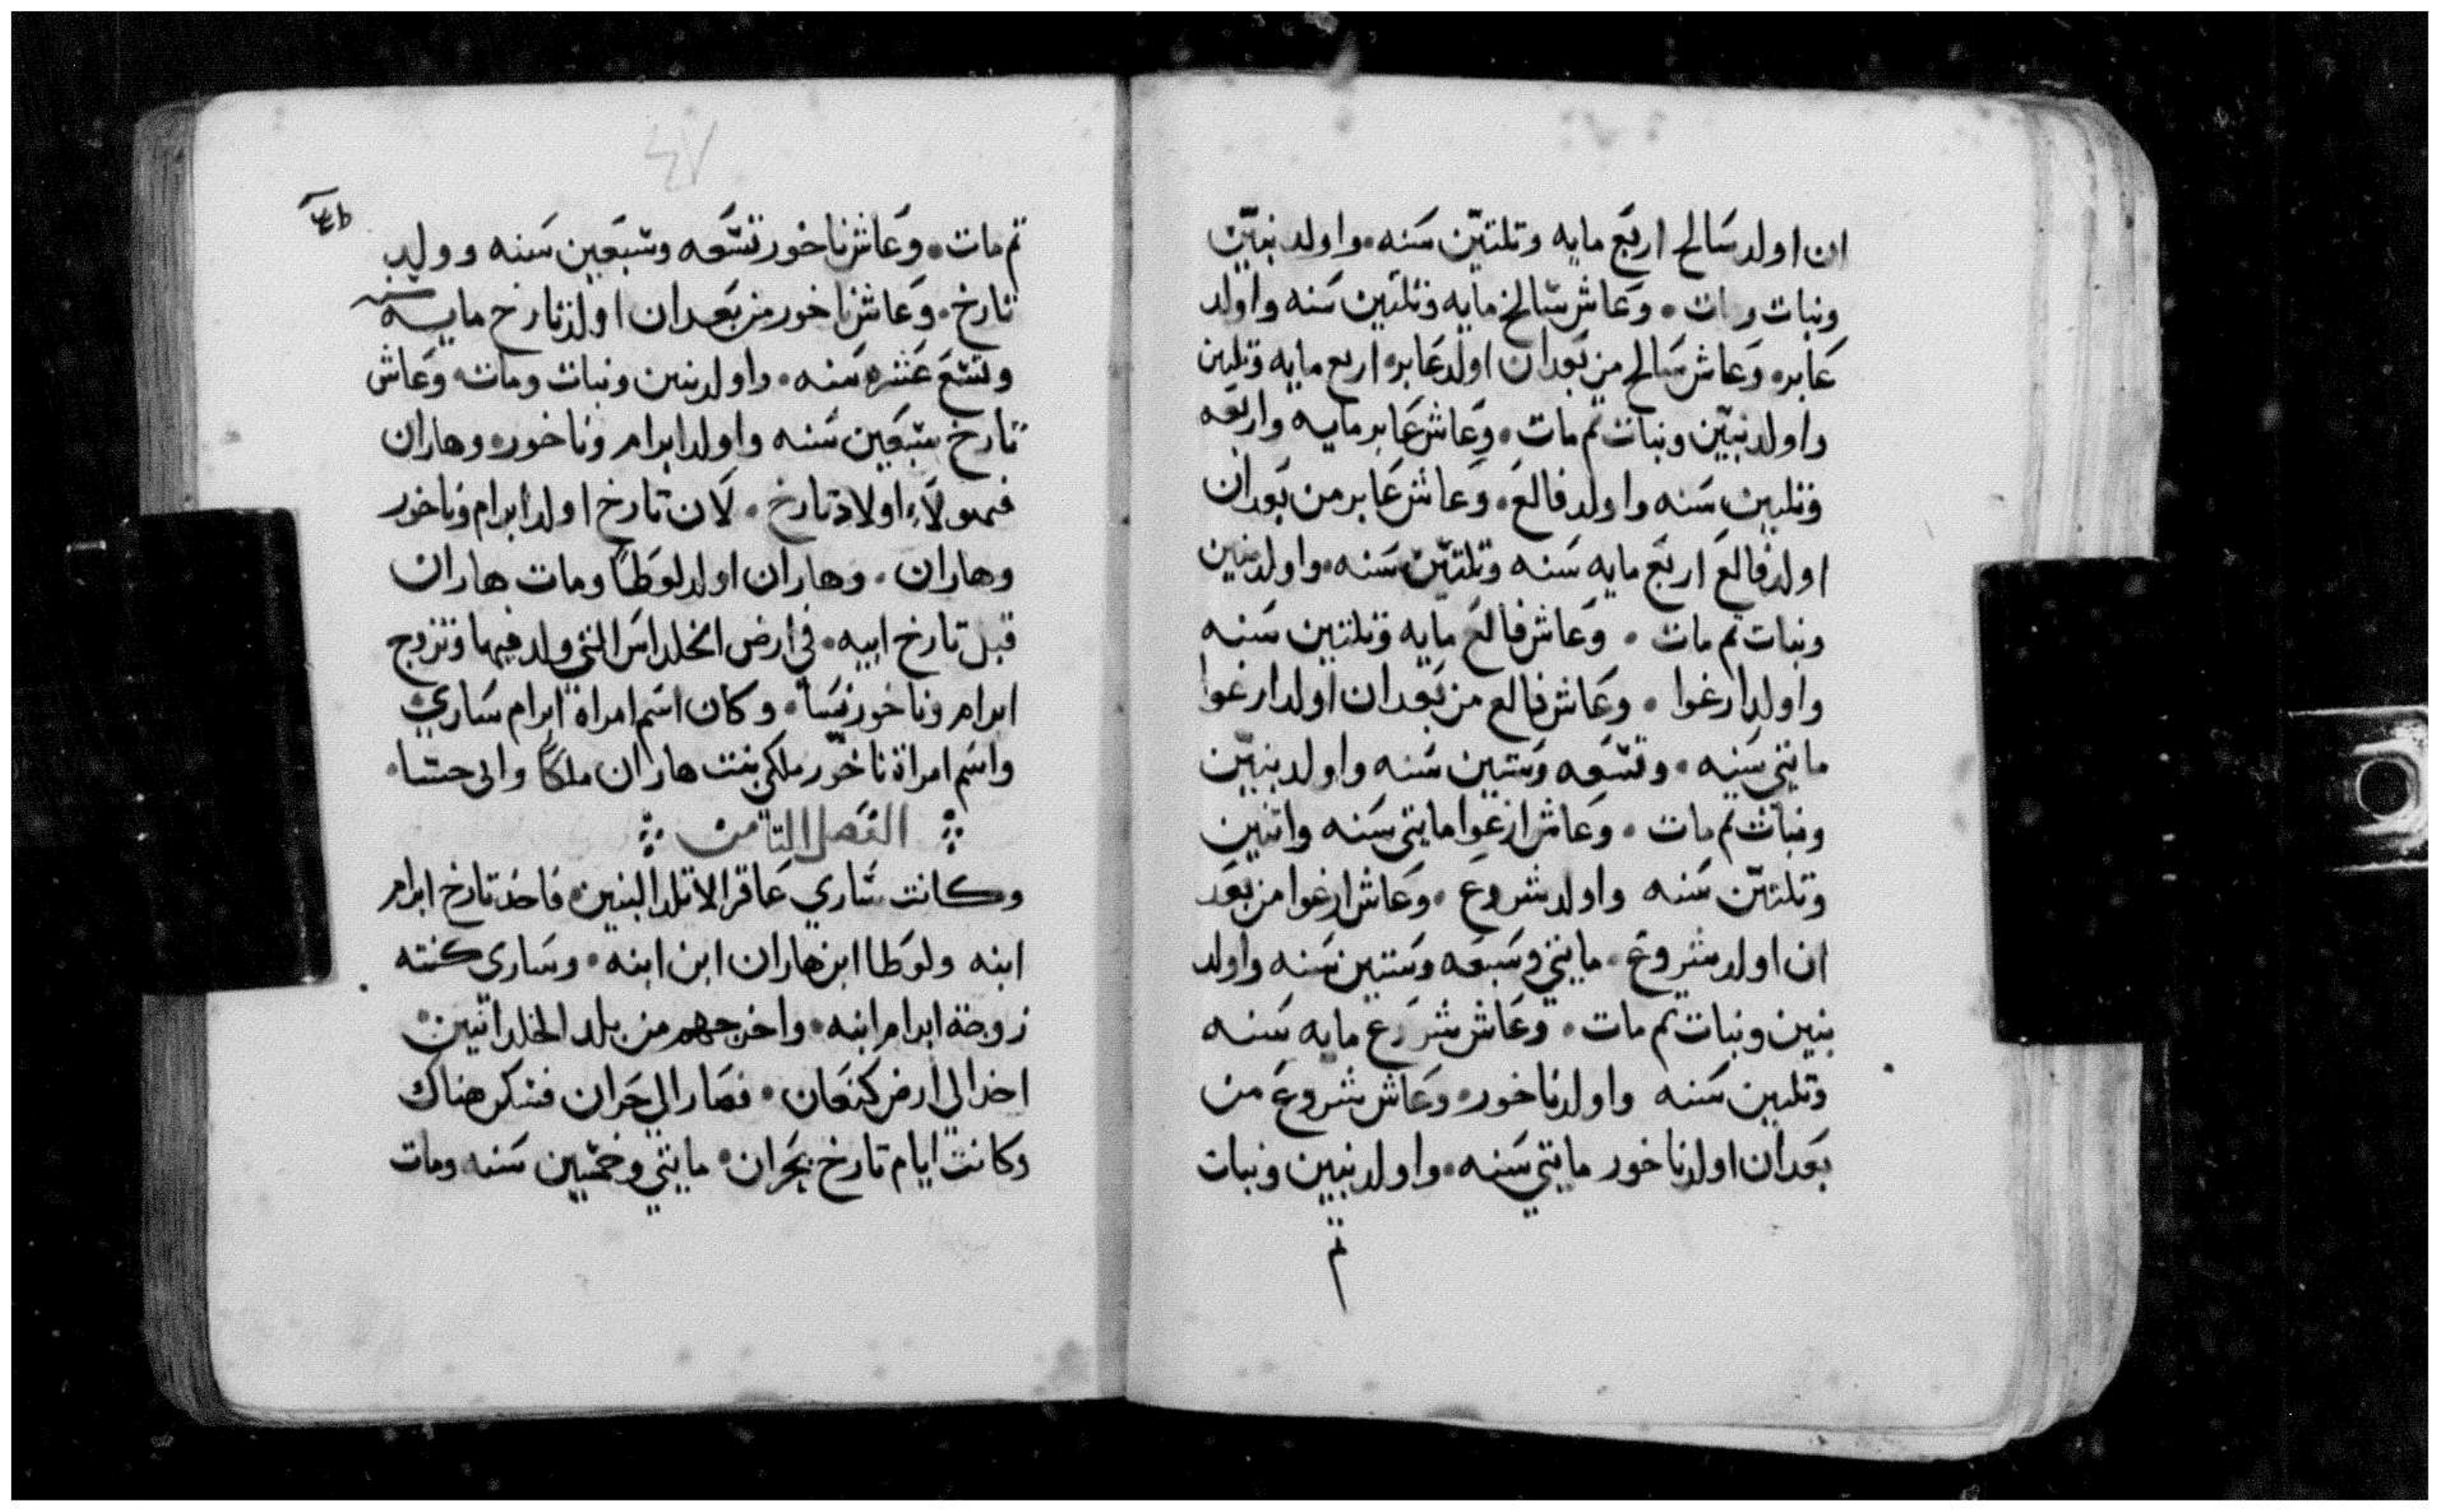 ان اولد سالح اربع مايه وتلتين سنه واولد بنين
وبنات ومات وعاش سالخ مايه وتلتين سنه واولد
عابر وعاش سالح من بعد ان اولد عابر اربع مايه وتلتين
واولد بنين وبنات تم مات وعاش عابر مايه واربعه
وتلتين سنه واولد فالع وعاش عابر من بعد ان
اولد فالع اربع مايه سنه وتلتين سنه واولد بنين
وبنات تم مات وعاش فالع مايه وتلتين سنه
واولد ارغوا وعاش فالع من بعد ان اولد ارغوا
مايتي سنه وتسعه وستين سنه واولد بنين
وبنات تم مات وعاش ارغوا مايتي سنه واتنين
وتلتين سنه واولد شروع وعاش ارغوا من بعد
ان اولد شروع مايتي وسبعه وستين سنه واولد
بنين وبنات تم مات وعاش شروع مايه سنه
وتلتين سنه واولد ناخور وعاش شروع من
بعد ان اولد ناخور مايتي سنه واولد بنين وبنات
تم
تم مات وعاش ناخور تسعه وسبعين سنه وولد
تارخ وعاش ناخور من بعد ان اولد تارخ مايه سنه
وتسع عشره سنه واولد بنين وبنات ومات وعاش
تارخ سبعين سنه واولد ابرام وناخور وهاران
فهولاء اولاد تارخ لان تارخ اولد ابرام وناخور
وهاران وهاران اولد لوطا ومات هاران
قبل تارخ ابيه في ارض الخلداس التي ولد فيها وتزوج
ابرام وناخور نسا وكان اسم امراة ابرام ساري
واسم امراة ناخور ملكي بنت هاران ملكا وابي حسا
الفصل التامن
وكانت ساري عاقرا لا تلد البنين فاخذ تارخ ابرام
ابنه ولوطا ابن هاران ابن ابنه وساري كنته
زوجة ابرام ابنه واخرجهم من بلد الخلدانيين
اخذا الي ارض كنعان فصار الي حران فسكن هناك
وكانت ايام تارخ بحران مايتي وخمسين سنه ومات